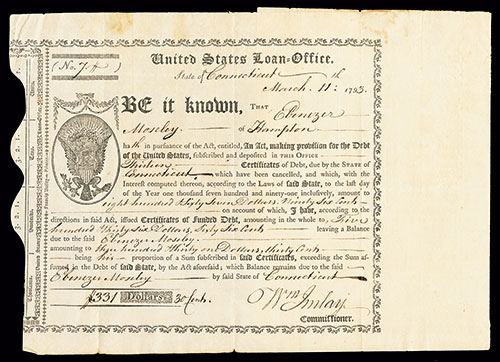 (No. 7.
United States Loan-Office.
State of Connecticut
March 11: 1793.
BE it known, THAT Ebenezer
Moseley of Hampton
hath in pursuance of the Act, entitled, An Act, making provision for the Debt
of the United States, subscribed and deposited in THIS OFFICE
Thirteen Certificates of Debt, due by the STATE OF
Connecticut which have been cancelled, and which, with the
Interest computed thereon, according to the Laws of said State, to the last day
of the Year one thousand seven hundred and ninety-one inclusively, amount to
eight hundred Sixty seven Dollars Ninety Six Cents
on account of which, I have, according to the
directions in said Act, issued Certificates of Funded Debt, amounting in the whole to, Five
hundred Thirty Six Dollars, Sixty Six Cents leaving a Balance
due to the said Ebenezer Mosley
amounting to three hundred Thirty one Dollars, Thirty Cents
being his proportion of a Sum subscribed in said Certificates, exceeding the Sum assumed
in the Debt of said State, by the Act aforesaid; which Balance remains due to the said
Ebenezer Mosley by said State of Connecticut
331 Dollars. 30 Cents.
Wm Imlay
Commissioner.